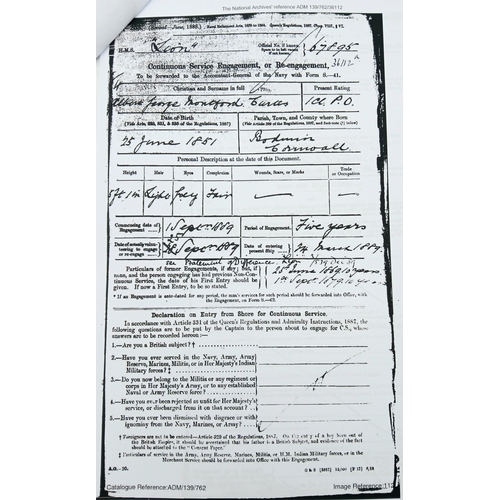 The National Archives' reference ADM 139/762/36112
H.M.S. "Lion" Official No. if known 67895
36112A
Continuous Service Engagement, or Re-engagement,
To be forwarded to the Accountant-General of the Navy with Form S.-41.
Christian and Surname in full Present Rating
George 1Cl P.O.
Date of Birth Parish, Town, and County where Born
25 June 1851 Bodmin
Cornwall
Personal Description at the date of this Document.
Height Hair Eyes Complexion Wounds, Scars, or Marks Trade or Occupation
5ft 1in Light Grey Fair — —
Commencing date of Engagement } 1 Sept 1889 Period of Engagement } Five years
Date of actually volunteering to engage or re-engage } Sept 1889 Date of entering present Ship } March 1889
see Statement of Difference
Particulars of former Engagements, if any; but, if none, and the person engaging has had previous Non-Continuous Service, the date of his First Entry should be given. If now a First Entry, to be so stated.
25 June 1869 10 years
1st Sept 1879 10 years
* If an Engagement is ante-dated for any period, the man's services for such period should be forwarded into Office, with the Engagement, on Form S.-42.
Declaration on Entry from Shore for Continuous Service.
In accordance with Article 331 of the Queen's Regulations and Admiralty Instructions, 1887, the following questions are to be put by the Captain to the person about to engage for C.S., whose answers are to be recorded herein:—
1.—Are you a British subject? †
2.—Have you ever served in the Navy, Army, Army Reserve, Marines, Militia, or in Her Majesty's Indian Military forces? ‡
3.—Do you now belong to the Militia or any regiment or corps in Her Majesty's Army, or to any established Naval or Army Reserve Force?
4.—Have you ever been rejected as unfit for Her Majesty's service, or discharged from it on that account?
5.—Have you ever been dismissed with disgrace or with ignominy from the Navy, Marines, or Army?
† Foreigners are not to be entered—Article 329 of the Regulations, 1887. On the entry of a boy born out of the British Empire, it should be ascertained that his father is a British subject, and evidence of the fact should be attached to the "Consent Paper."
‡ Particulars of service in the Army, Army Reserve, Marines, Militia, or H.M. Indian Military forces, or in the Merchant Service should be forwarded into Office with this Engagement.
Catalogue Reference:ADM/139/762 Image Reference:112